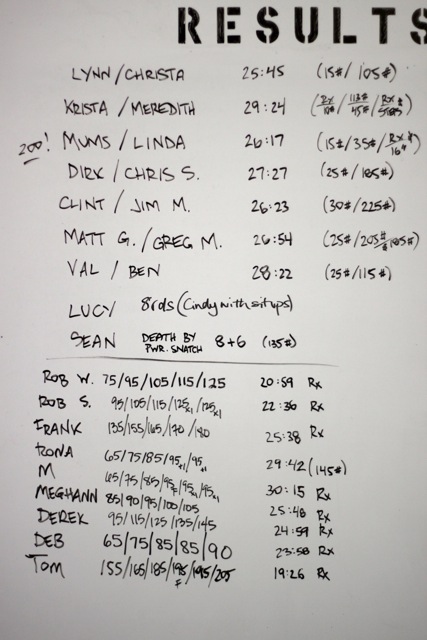 RESULTS
LYNN/CHRISTA 25:45 (15#/105#)
KRISTA/MEREDITH 29:24
200! MUMS/LINDA 26:17 (15#/35#/Rx# 16#)
DIRK/CHRIS S. 27:27 (25#/185#)
CLINT/JIM M. 26:23 (30#/225#)
MATT G./GREG M. 26:54 (25#/205#
VAL/BEN 28:22 (25#/115#)
LUCY 8rds (Cindy with situps)
SEAN DEATH BY PWR. SNATCH 8+6 (135#)
ROB W. 75/95/105/115/125 20:59 Rx
ROB S. 95/105/115/125x1/125x1 22:36 Rx
FRANK 135/155/165/170/180 25:38 Rx
RONA 65/75/85/95+1/95+1 29:42 (145#)
M 65/75/85/95 30:15 Rx
MEGHANN 85/90/95/100/105 25:48 Rx
DEREK 95/115/125/135/145 24:59 Rx
DEB 65/75/85/85/90 23:58 Rx
TOM 155/165/185/195F/195/205 19:26 Rx